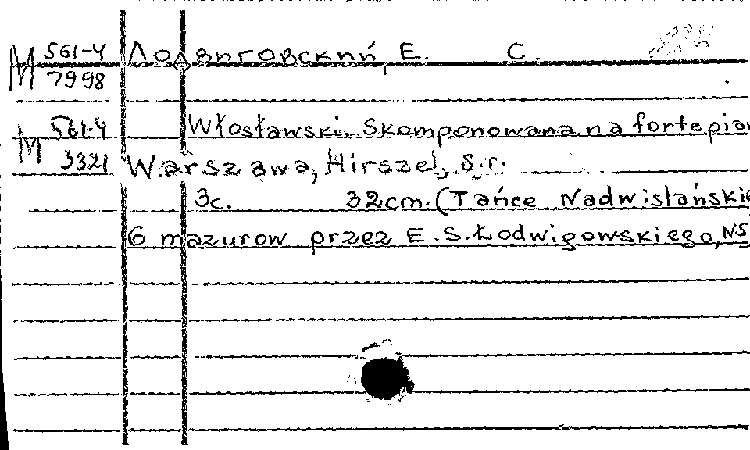 М 561-4 Лодвиговский, Е. С.
7998
М 561-4 Włosławski. Skomponowana na fortepian
3321 Warszawa, Hirszel, s.r.
3c. 32cm. (Tańce Nadwiślańskie
6 mazurow przez E.S.Łodwigowskiego, N5